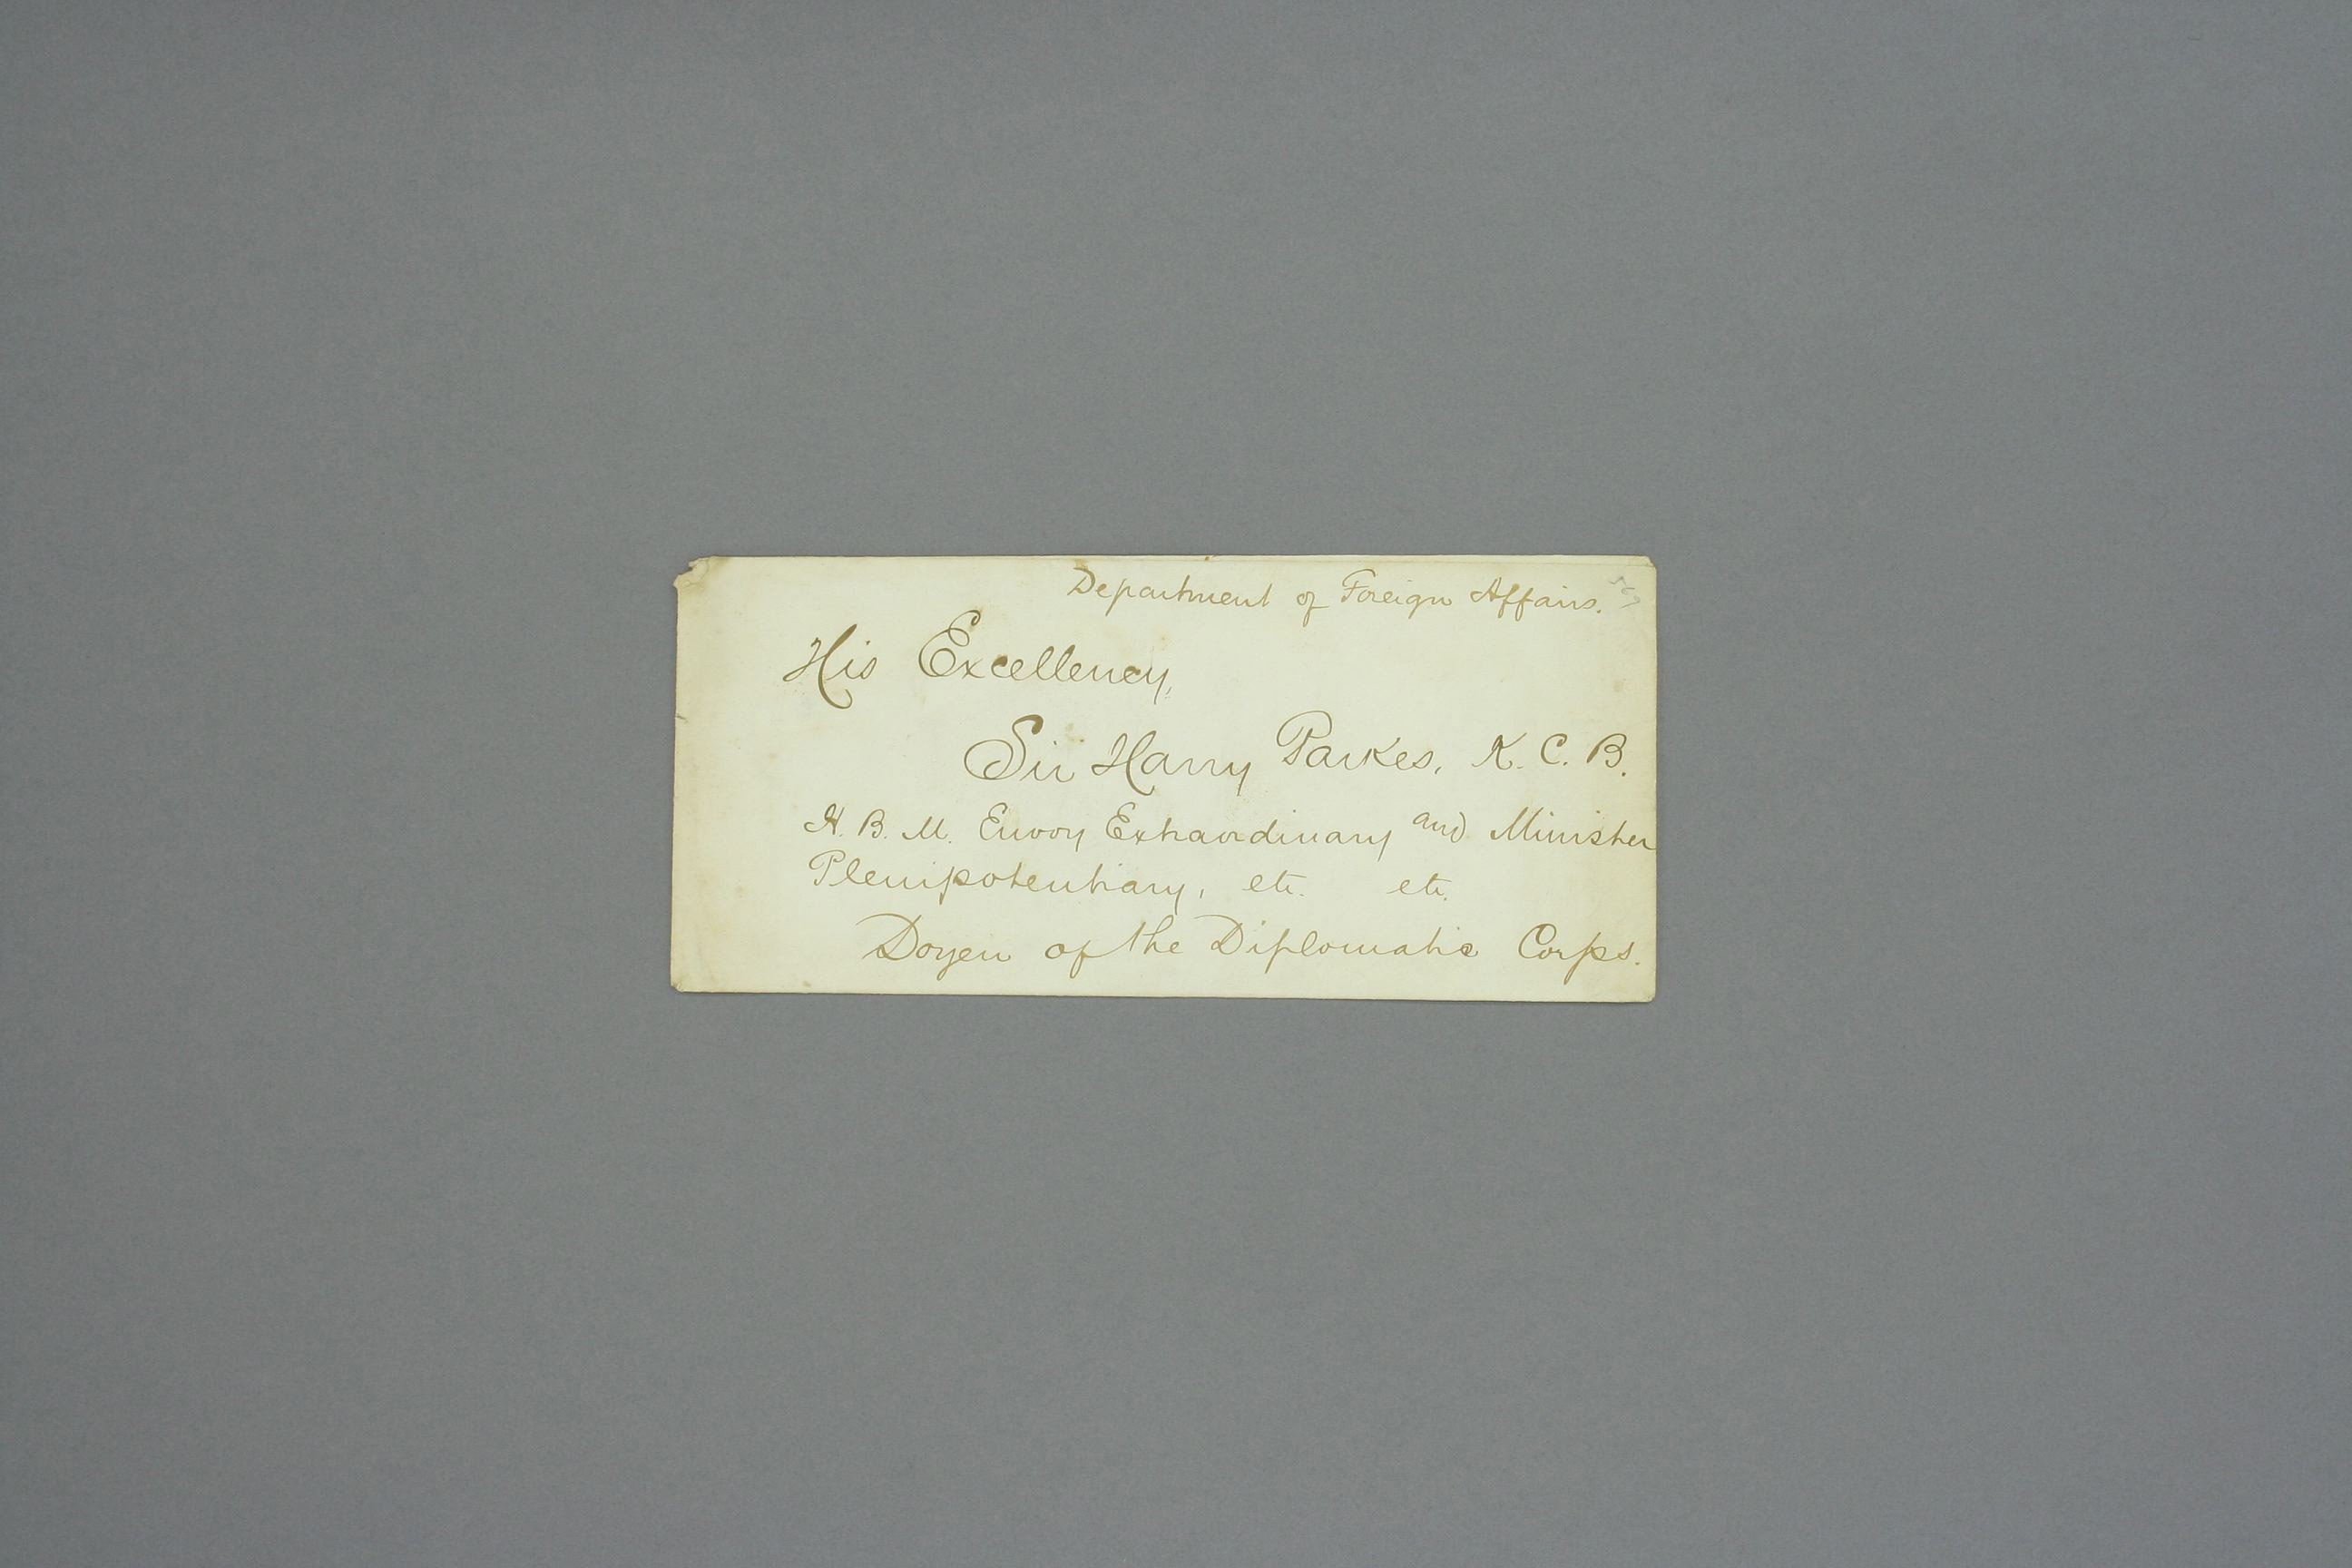 Department of Foreign Affairs.
His Excellency,
Sir Harry Parkes, K. C. B.
H. B. M. Envoy Extraordinary and Minister
Plenipotentiary, etc. etc.
Doyen of the Diplomatic Corps.